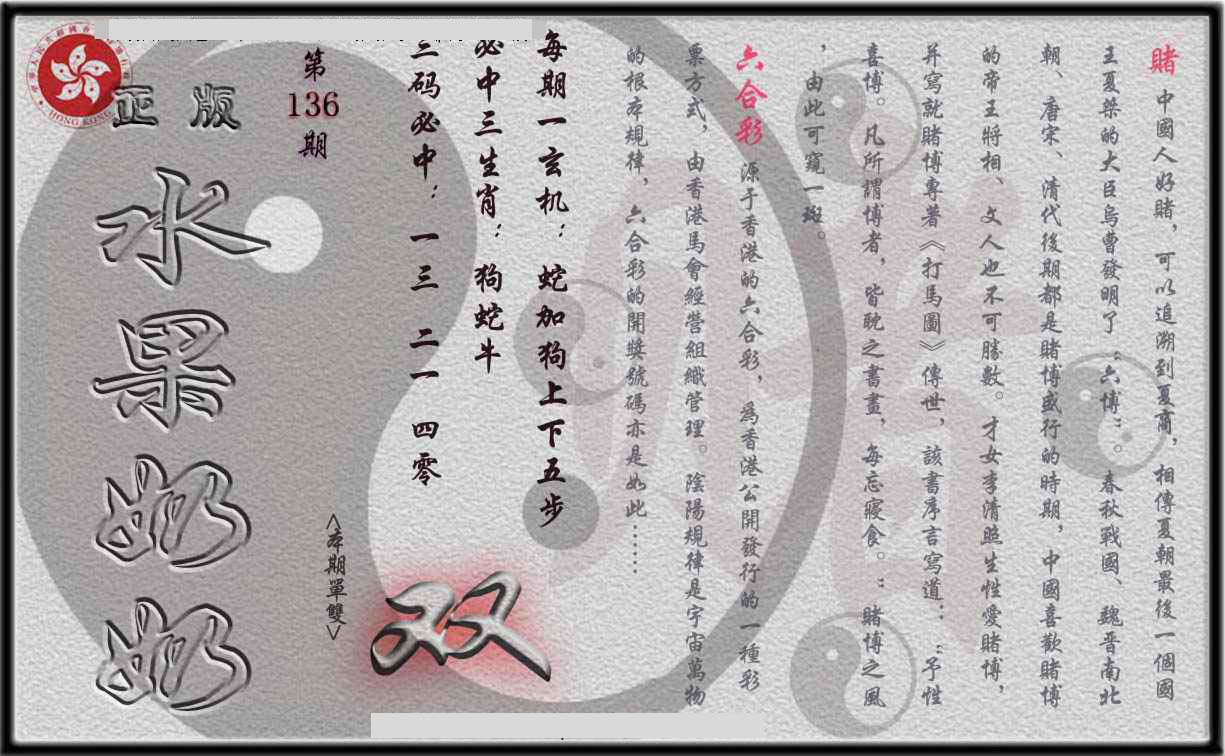 賭 中國人好賭，可以追溯到夏商，相傳夏朝最後一個國
王夏桀的大臣烏曹發明了“六博”。春秋戰國、魏晉南北
朝、唐宋、清代後期都是賭博盛行的時期，中國喜歡賭博
的帝王將相、文人也不可勝數。才女李清照生性愛賭博，
并寫就賭博專著《打馬圖》傳世，該書序言寫道：“予性
喜博。凡所謂博者，皆耽之書畫，每忘寢食。”賭博之風
，由此可窺一斑。
六合彩 源于香港的六合彩，為香港公開發行的一種彩
票方式，由香港馬會經營組織管理。陰陽規律是宇宙萬物
的根本規律，六合彩的開獎號碼亦是如此……
每期一玄机：蛇加狗上下五步
必中三生肖：狗蛇牛
三码必中：一三 二一 四零
双
<本期單雙>
第
136
期
正版
水果奶奶
HONG KONG